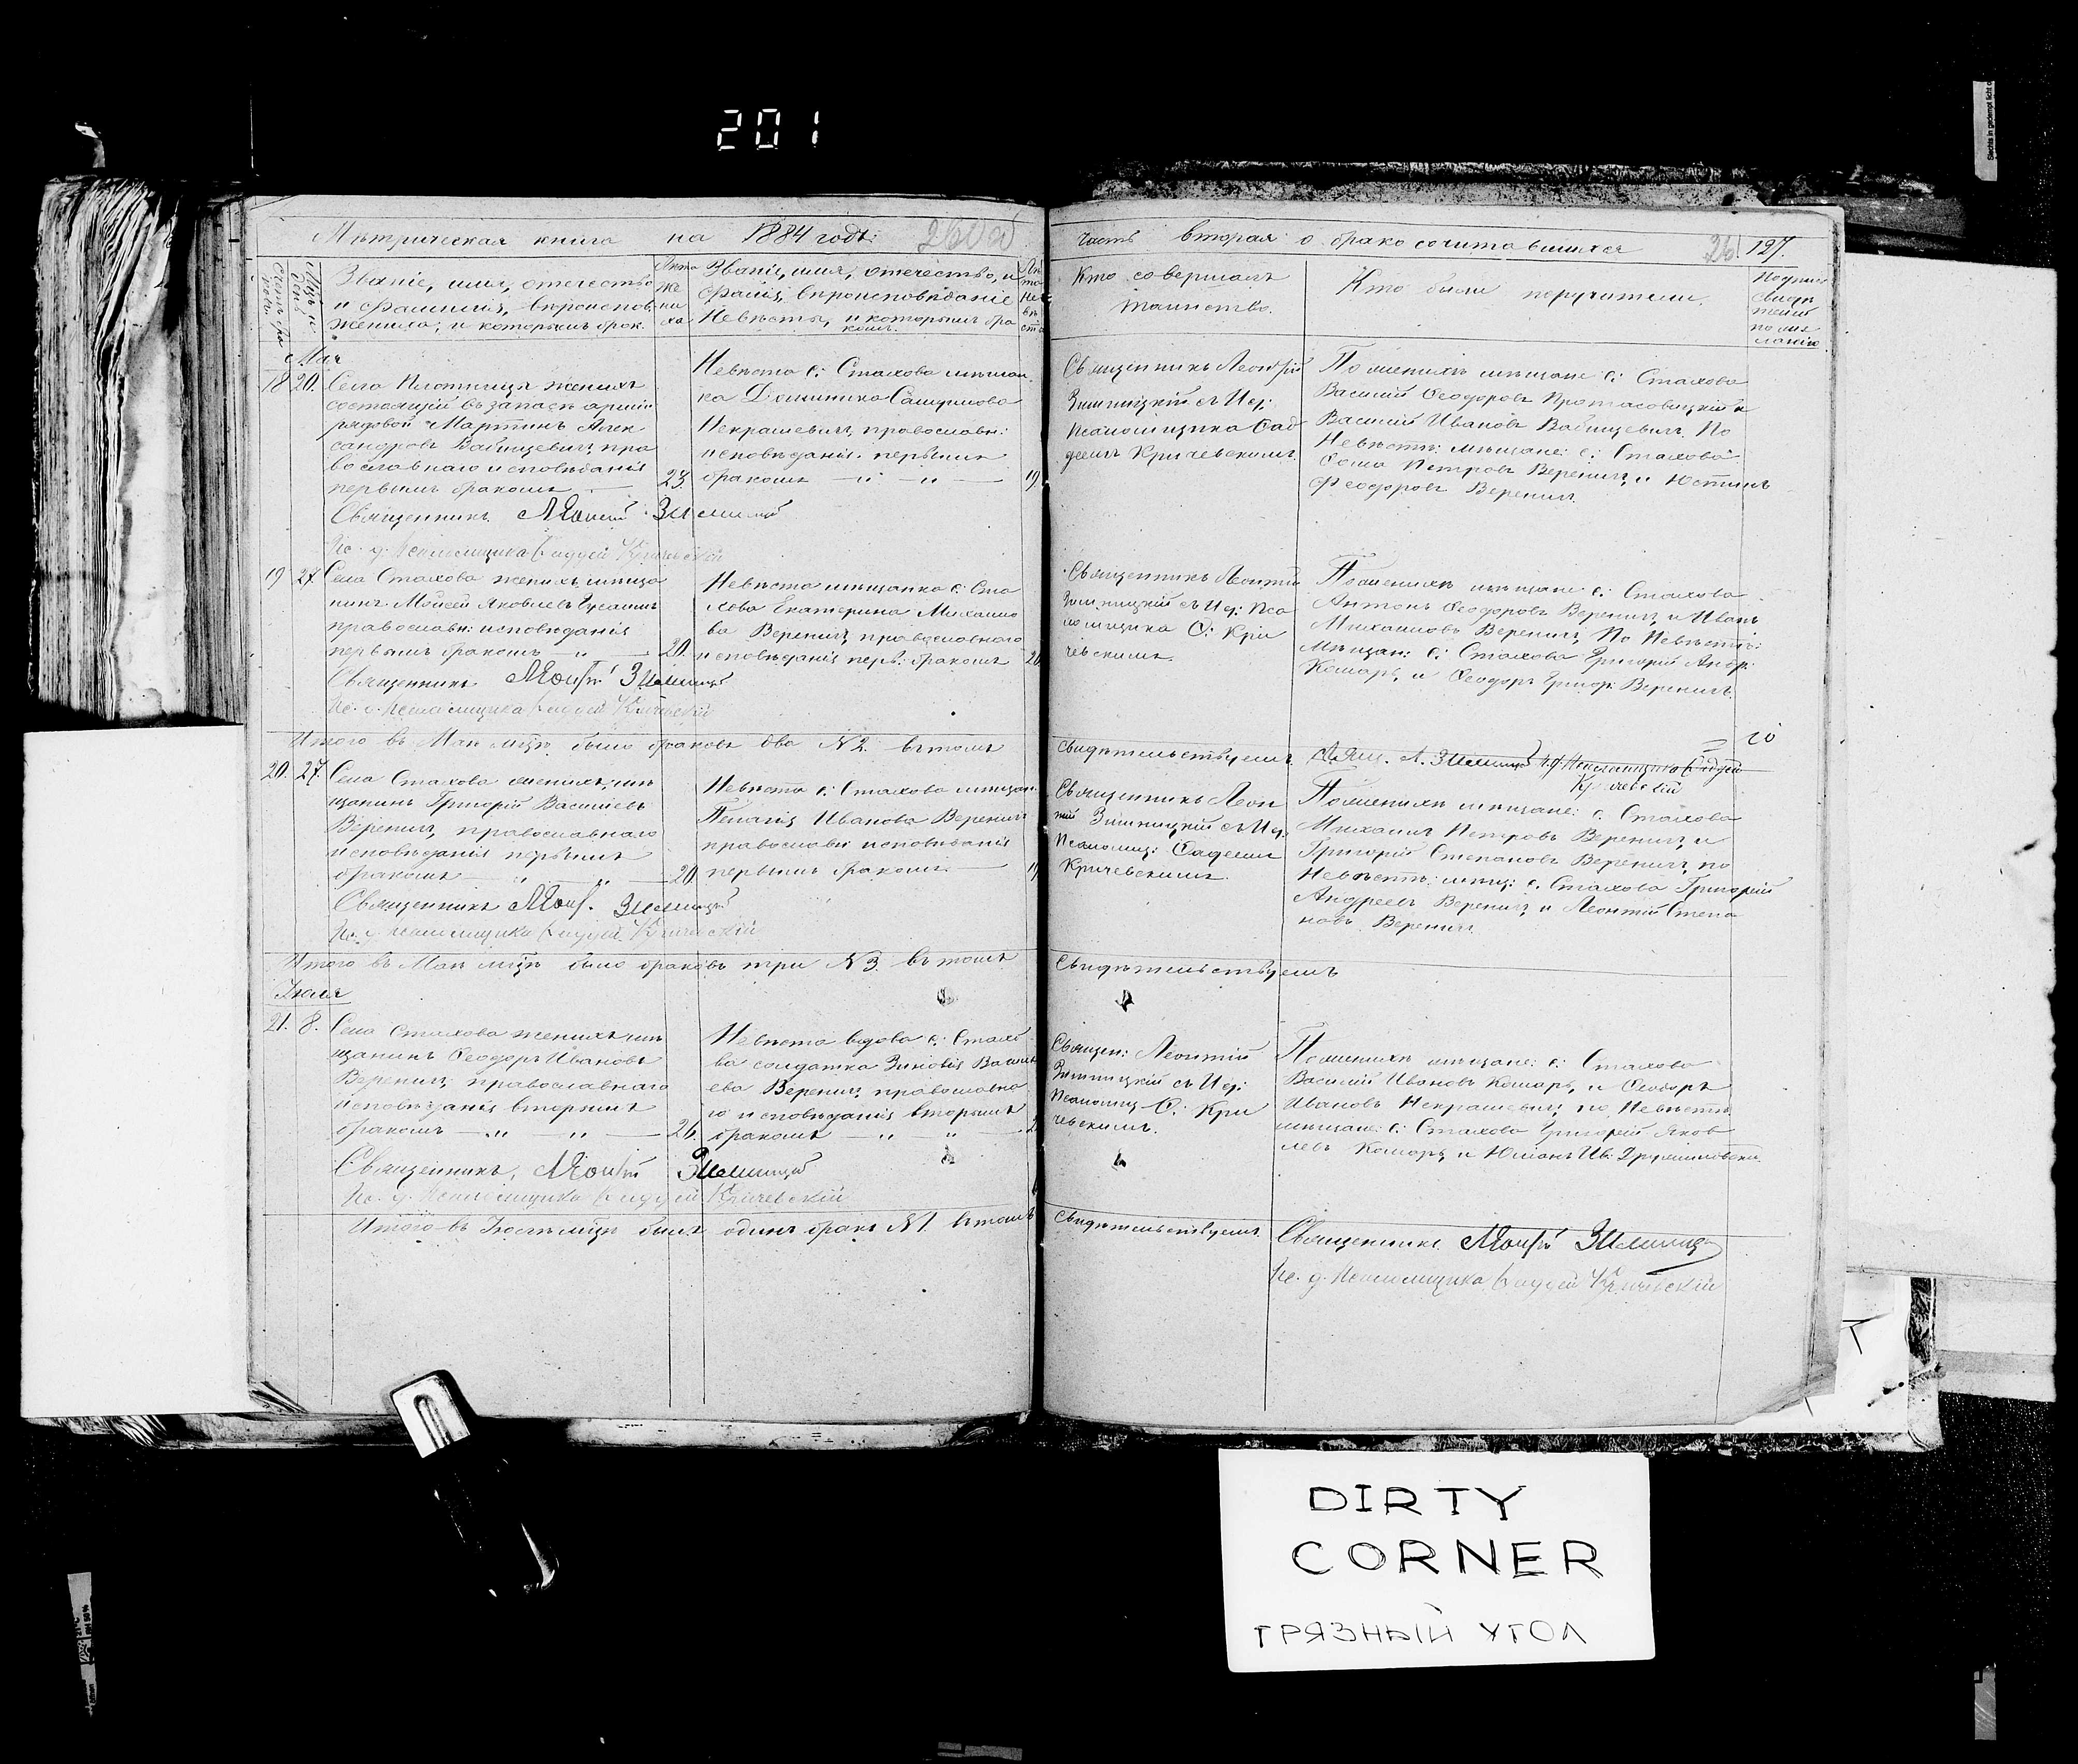 201
Метрическая книга на 1884 годъ.
Часть вторая о бракосочитавшихся 26 127.
Званіе, имя, отечество
и фамилія, вѣроисповѣ.
жениха, и которымъ брак.
Лѣта
же
ни
ха.
Званіе, имя, отечество, и
фамил., вѣроисповѣданіе
Невѣсты, и которымъ бра
комъ.
Кто совершалъ
таинство.
Кто были поручители.
Май
18 20. Села Плотницы женихъ
состоящій въ запасѣ арміи
рядовой Мартинъ Алек
сандровъ Вабищевичъ, пра
вославнаго исповѣданія
первымъ бракомъ 23.
Невѣста с: Стахова мѣщан
ка Доминика Самуилова
Некрашевичъ, православн:
исповѣданія. первымъ
бракомъ — " — " — 19
Священникъ Леонтій
Зимницкій съ И. д:
псаломщика Фад
деемъ Кричевскимъ.
По женихѣ мѣщане с: Стахова
Василій Ѳеодоровъ Протасовицкій и
Василій Ивановъ Вабищевичъ. По
Невѣстѣ: мѣщане: с: Стахова
Ѳома Петровъ Веренич, и Юстинъ
Ѳеодоровъ Веренич.
Священникъ Леонтій Зимницкій
Ис. д. Псаломщика Фаддей Кричевскій
19 27. Села Стахова женихъ, мѣща
нинъ Мойсей Яковлевъ
православн: исповѣданія
первымъ бракомъ — " — 20.
Невѣста мѣщанка с: Ста
хова Екатерина Михайло
ва Веренич, православнаго
исповѣданія перв: бракомъ 20
Священникъ Леонтій
Зимницкій съ И. д: Пса
ломщика Ѳ: Кри
чевскимъ.
По женихѣ мѣщане с: Стахова
Антонъ Ѳеодоровъ Веренич, и Иванъ
Михайловъ Веренич, По Невѣстѣ:
мѣщан: с: Стахова Григорій Андр:
Комаръ, и Ѳеодоръ Григор: Веренич.
Священникъ Леонтій Зимницкій
Ис. д. Псаломщика Фаддей Кричевскій
Итого въ Маѣ мѣцѣ было браковъ два № 2. въ томъ
свидѣтельствуемъ. Свящ. Л. Зимницкій И. д. Псаломщика Фаддей
Кричевскій
20. 27. Села Стахова женихъ, мѣ
щанинъ Григорій Васильевъ
Веренич, православнаго
исповѣданія первымъ
бракомъ — " — " — 20
Невѣста с: Стахова мѣщан:
Пелагія Иванова Веренич
православн: исповѣданія
первымъ бракомъ — 19
Священникъ Леон
тій Зимницкій съ И. д.
Псаломщ: Фаддеем
Кричевскимъ.
По женихѣ мѣщане: с: Стахова
Михаилъ Петровъ Веренич, и
Григорій Степановъ Веренич, по
Невѣстѣ: мѣщ: с. Стахова Григорій
Андреевъ Веренич, и Леонтій Степа
новъ Веренич.
Священникъ Леонт. Зимницкій
Ис. д. Псаломщика Фаддей Кричевскій
Итого въ Маѣ мѣцѣ было браковъ три № 3. въ томъ
Свидѣтельствуемъ
Іюля
21. 8. Села Стахова женихъ, мѣ
щанинъ Ѳеодоръ Ивановъ
Веренич, православнаго
исповѣданія вторымъ
бракомъ — " — " — 26.
Невѣста вдова с: Стахо
ва солдатка Зиновія Василь
ева Веренич, православна
го исповѣданія вторымъ
бракомъ — " — " —
Священ: Леонтій
Зимницкій съ И. д:
Псаломщ Ѳ: Кри
чевскимъ.
По женихѣ мѣщане: с: Стахова
Василій Ивановъ Комаръ, и Ѳеодоръ
Ивановъ Некрашевичъ, по Невѣстѣ
мѣщане: с: Стахова Григорій Яков
левъ Комаръ, и Юліанъ Ив:
Священникъ, Леонтій Зимницкій
Ис. д. Псаломщика Фаддей Кричевскій
Итого въ Іюлѣ мѣцѣ былъ одинъ бракъ № 1 въ томъ
свидѣтельствуемъ. Священникъ Леонтій Зимницкій
Ис. д. Псаломщика Фаддей Кричевскій
DIRTY
CORNER
ГРЯЗНЫЙ УГОЛ